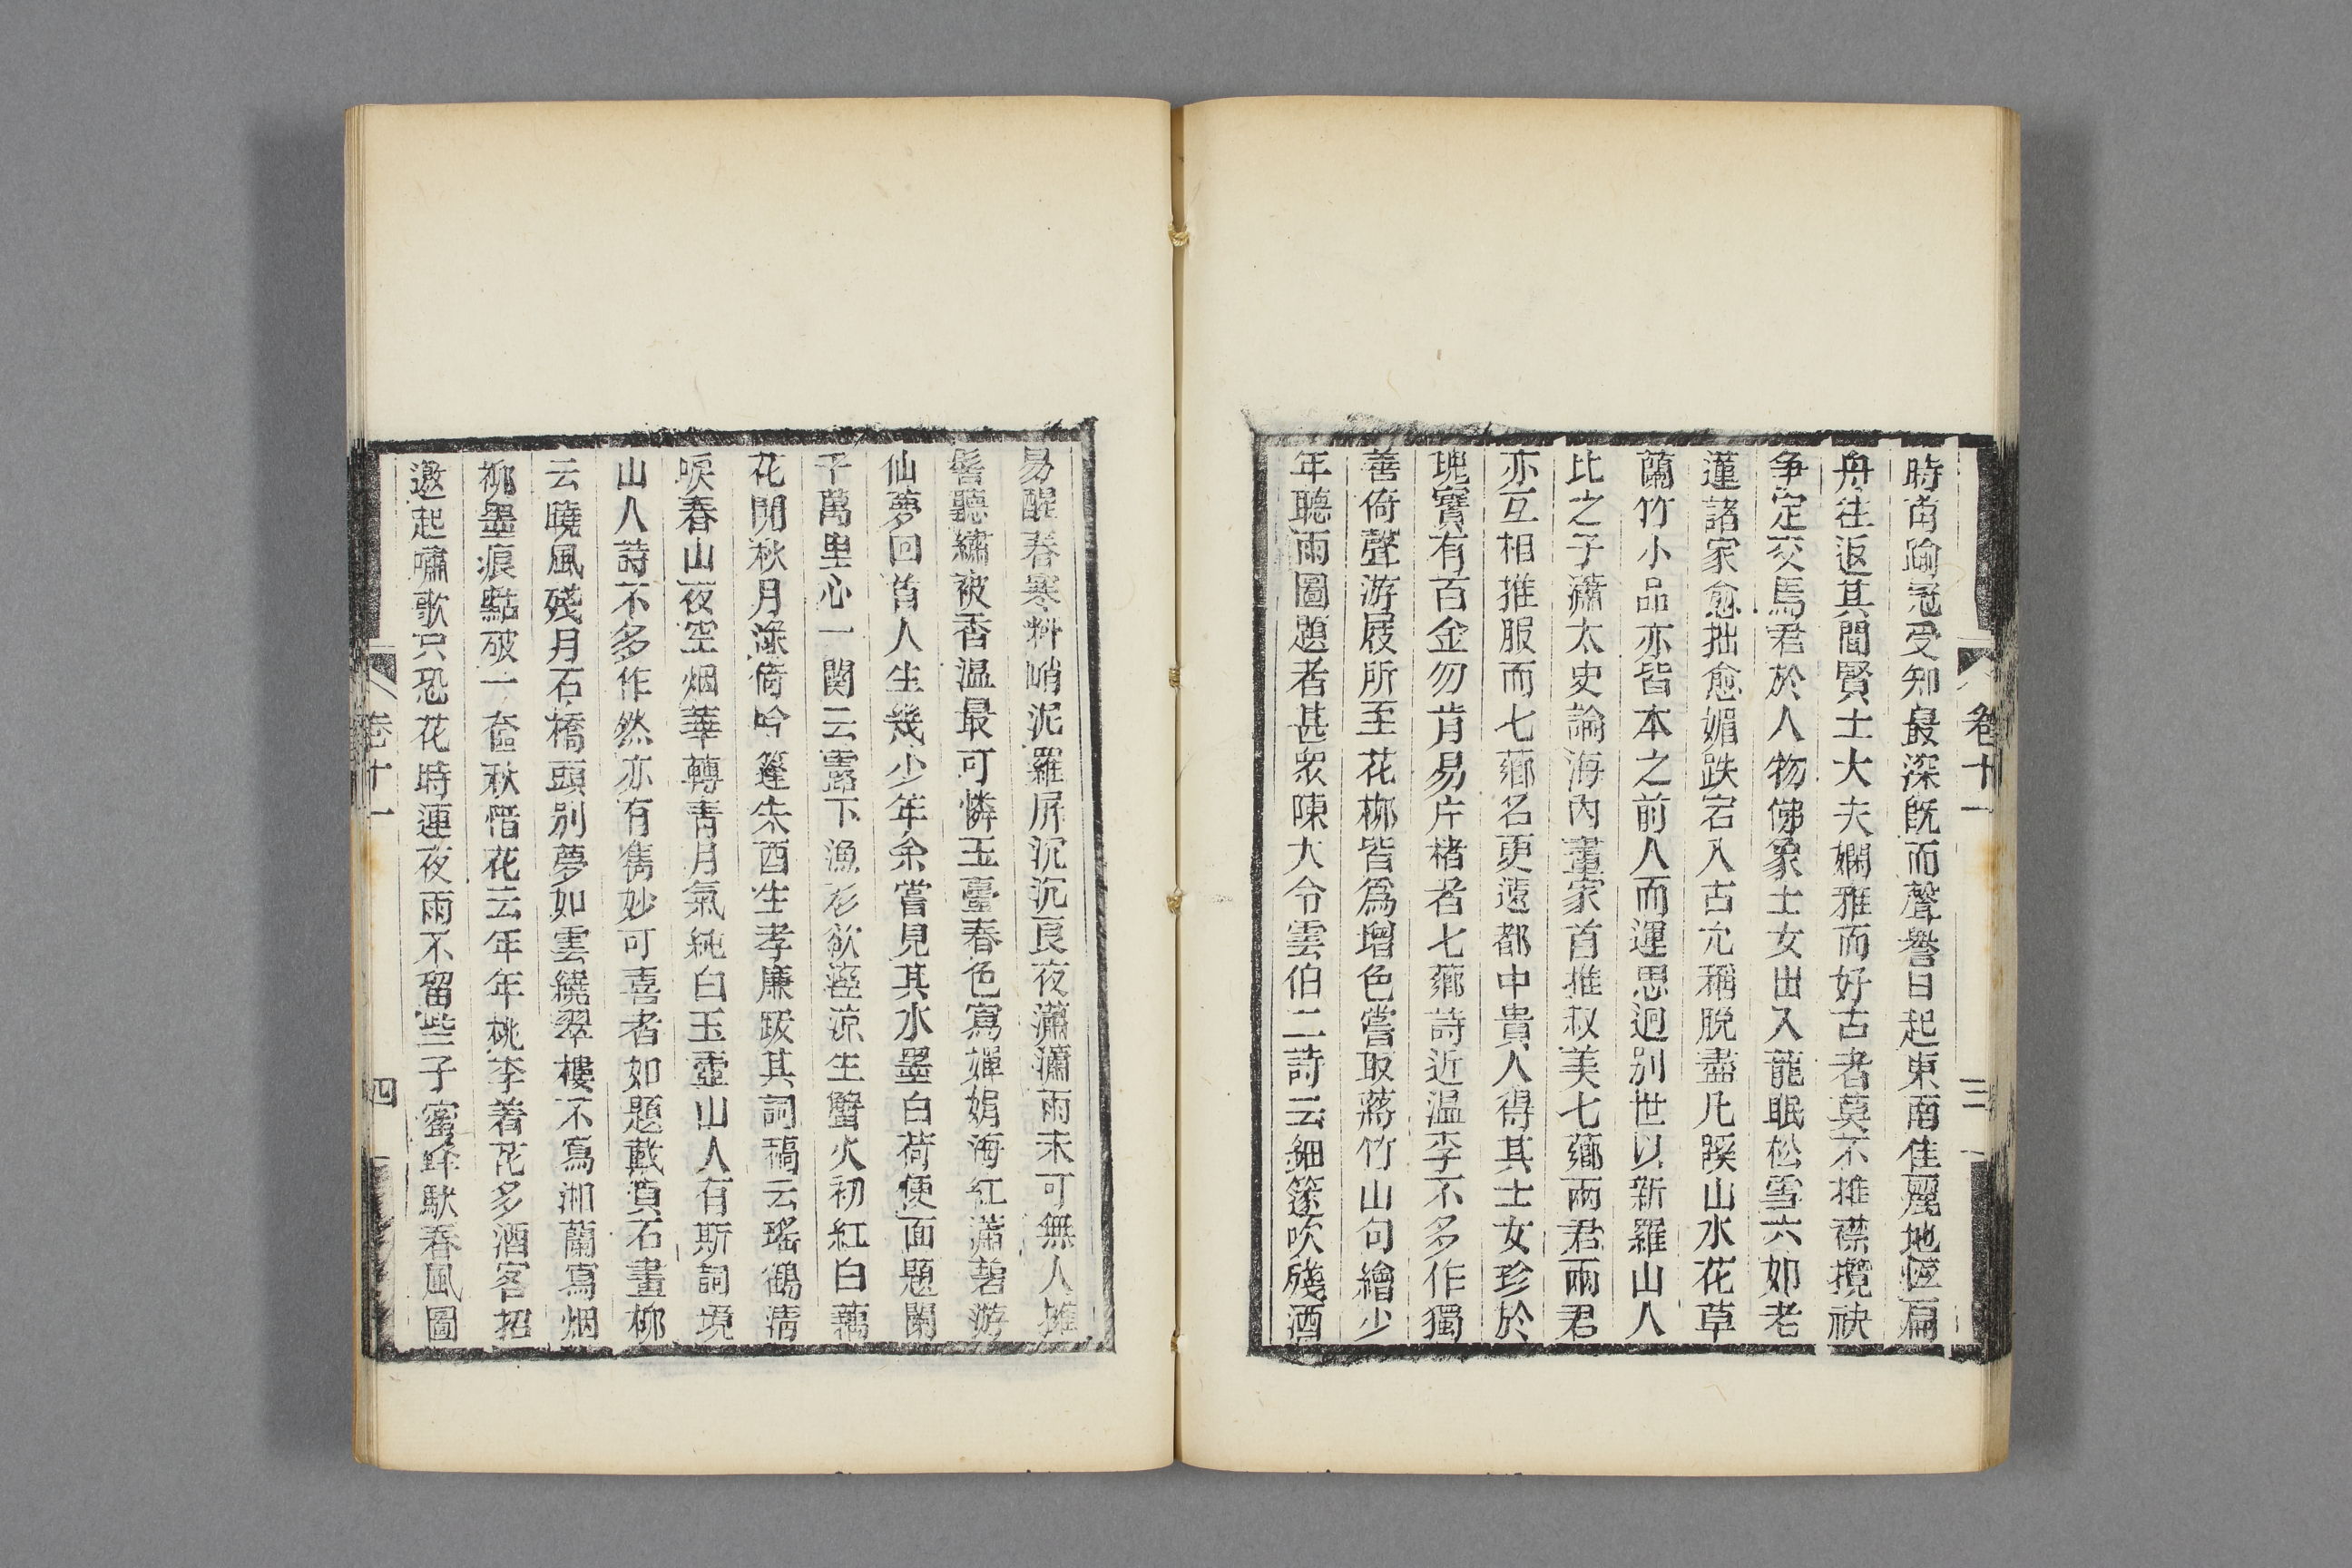 卷十一
三
時甫踰冠受知最深既而聲譽日起東南佳麗地恆扁
舟往返其間賢士大夫嫻雅而好古者莫不推襟攬袂
争定交焉君於人物佛象士女出入龍眠松雪六如老
蓮諸家愈拙愈媚跌宕入古允稱脱盡凡蹊山水花草
蘭竹小品亦皆本之前人而運思迥别世以新羅山人
比之子瀟太史論海内畫家首推叔美七薌兩君兩君
亦互相推服而七薌名更遠都中貴人得其士女珍於
瑰寶有百金勿肯易片楮者七薌詩近温李不多作獨
善倚聲游屐所至花栁皆爲增色嘗取蔣竹山句繪少
年聽雨圖題者甚衆陳大令雲伯二詩云細篴吹殘酒
易醒春寒料峭泥羅屏沉沉良夜瀟瀟雨未可無人擁
髻聽繡被香温最可憐玉臺春色寫嬋娟海紅蕭碧游
仙夢回首人生幾少年余嘗見其水墨白荷便面題闌
千萬里心一闋云露下漁衫欲溼凉生蟹火初紅白藕
花開秋月淥倚吟篷朱酉生孝廉跋其詞稿云瑤鶴淸
唳春山夜空烟華轉青月氣純白玉壺山人有斯詞境
山人詩不多作然亦有雋妙可喜者如題戴蕢石畫栁
云曉風殘月石橋頭别夢如雲繞翠樓不寫湘蘭寫烟
栁墨痕點破一奩秋惜花云年年桃李着花多酒客招
邀起嘯歌只恐花時連夜雨不留些子蜜蜂馱春風圖
卷十一
四